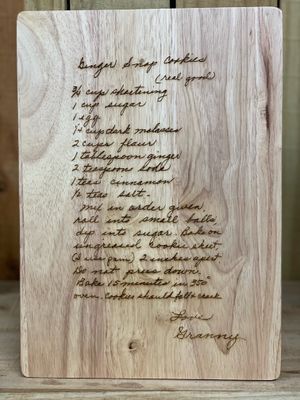 Ginger Snap Cookies
(real good)
3/4 cup shortening
1 cup sugar
1 egg
1/4 cup dark molasses
2 cups flour
1 tablespoon ginger
2 teaspoon soda
1 teas cinnamon
1/2 teas salt.
Mix in order given
roll into small balls
dip into sugar. Bake on
ungreased cookie sheet
2 inches apart
Do not press down.
Bake 15 minutes in 350°
oven. Cookies should fall & crack
Love
Granny